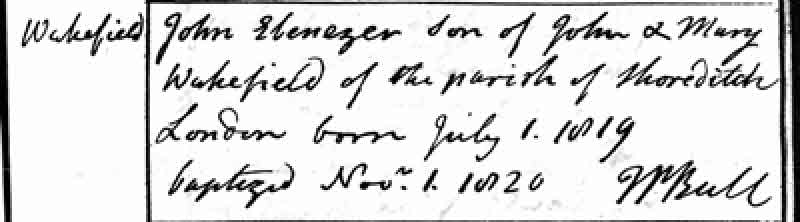 Wakefield
John Ebenezer Son of John & Mary
Wakefield of the parish of Shoreditch
London born July 1. 1819
baptized Novr. 1. 1820 Bull